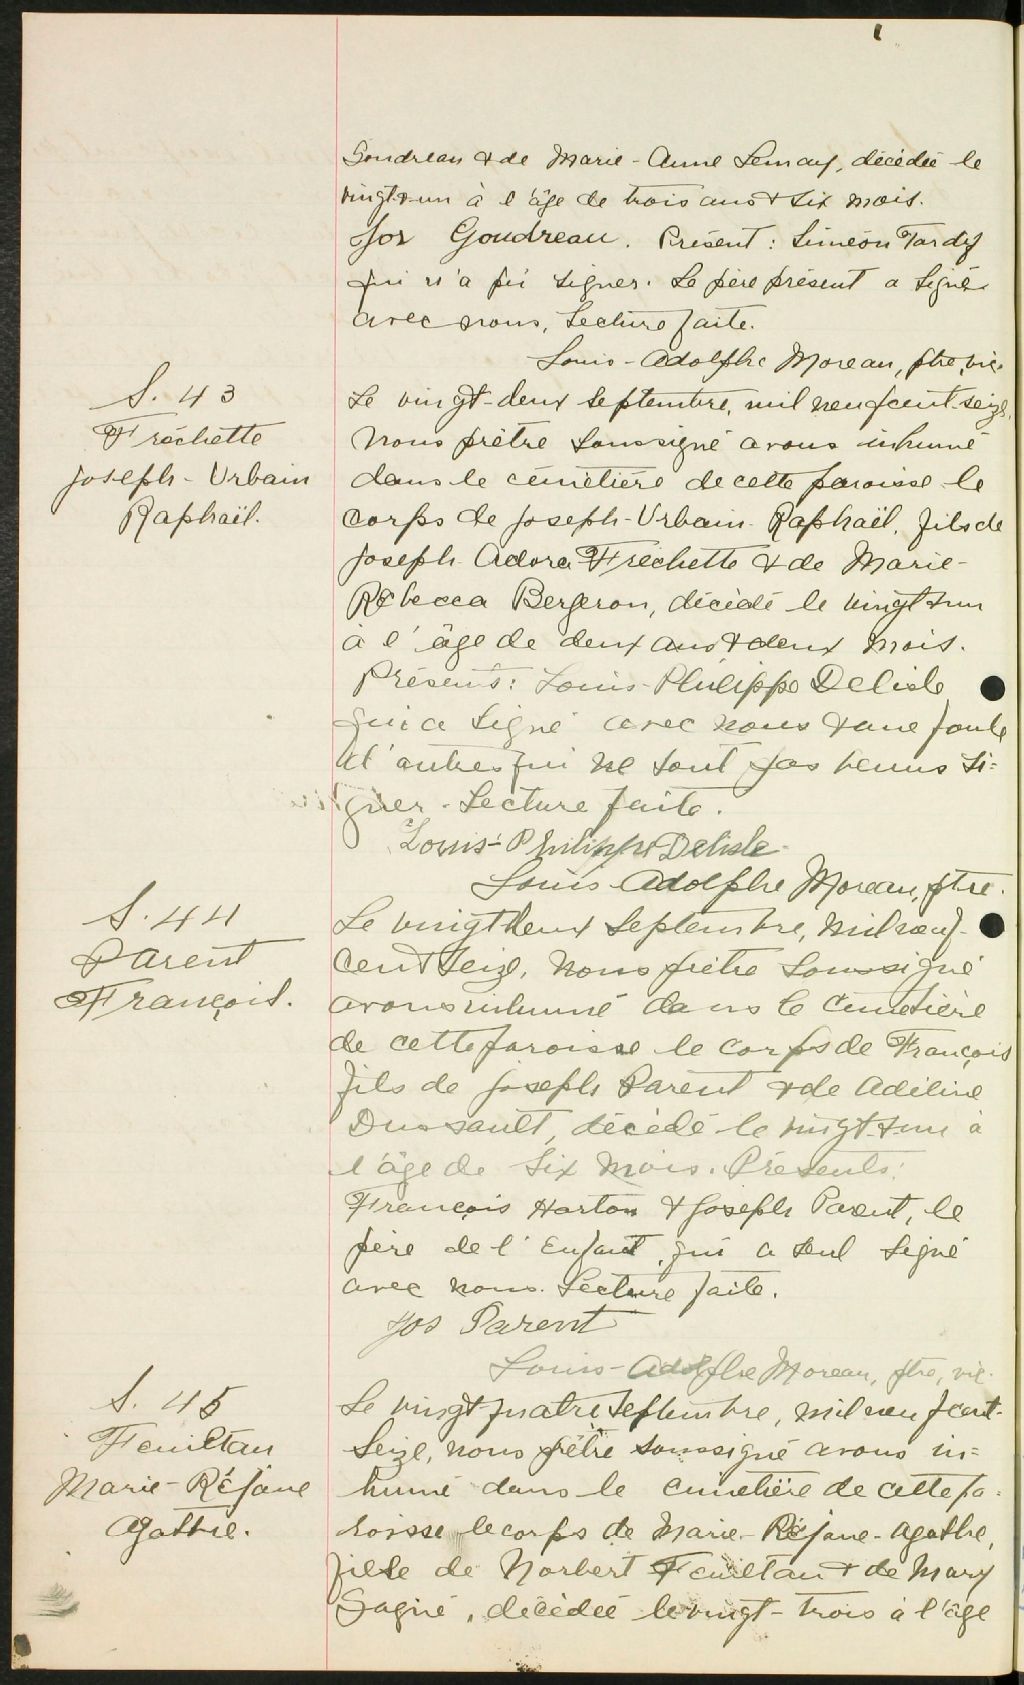 Goudreau & de Marie-Anne Lemay, décédée le
vingt & un à l'âge de trois ans & six mois.
Jos Goudreau. Présent: Siméon Tardif
qui n'a pu signer. Le père présent a signé
avec nous, Lecture faite.
Louis-Adolphe Moreau, ptre, vic.
S. 43
Fréchette
Joseph-Urbain
Raphaël.
Le vingt-deux septembre, mil neuf cent-seize,
nous prêtre soussigné avons inhumé
dans le cimetière de cette paroisse le
corps de Joseph-Urbain-Raphaël, fils de
Joseph-Adora Fréchette & de Marie-
Rébecca Bergeron, décédé le vingt & un
à l'âge de deux ans & deux mois.
Présents: Louis-Philippe Delisle
qui a signé avec nous & une foule
d'autres qui ne sont pas venus si=
gner. Lecture faite.
Louis-Philippe Delisle
Louis-Adolphe Moreau, ptre.
S. 44
Parent
François.
Le vingt deux septembre, mil neuf-
cent seize, nous prêtre soussigné
avons inhumé dans le cimetière
de cette paroisse le corps de François
fils de Joseph Parent & de Adéline
Dussault, décédé le vingt & un à
l'âge de six mois. Présents:
François Horton & Joseph Parent, le
père de l'enfant, qui a seul signé
avec nous. Lecture faite.
Jos Parent
Louis-Adolphe Moreau, ptre, vic.
S. 45
Feuiltau
Marie-Réjane
Agathe.
Le vingt quatre septembre, mil neuf cent-
seize, nous prêtre soussigné avons in=
humé dans le cimetière de cette pa-
roisse le corps de Marie-Réjane-Agathe,
fille de Norbert Feuiltau & de Mary
Gagné, décédée le vingt-trois à l'âge